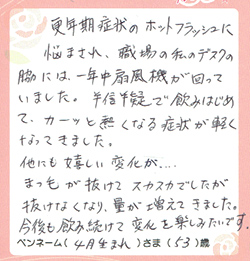 更年期症状のホットフラッシュに
悩まされ、職場の私のデスクの
脇には、一年中扇風機が回って
いました。半信半疑で飲みはじめ
て、カーッと熱くなる症状が軽く
なってきました。
他にも嬉しい変化が....
まつ毛が抜けてスカスカでしたが
抜けなくなり、量が増えてきました。
今後も飲み続けて変化を楽しみたいです。
ペンネーム(4月生まれ)さま(53)歳